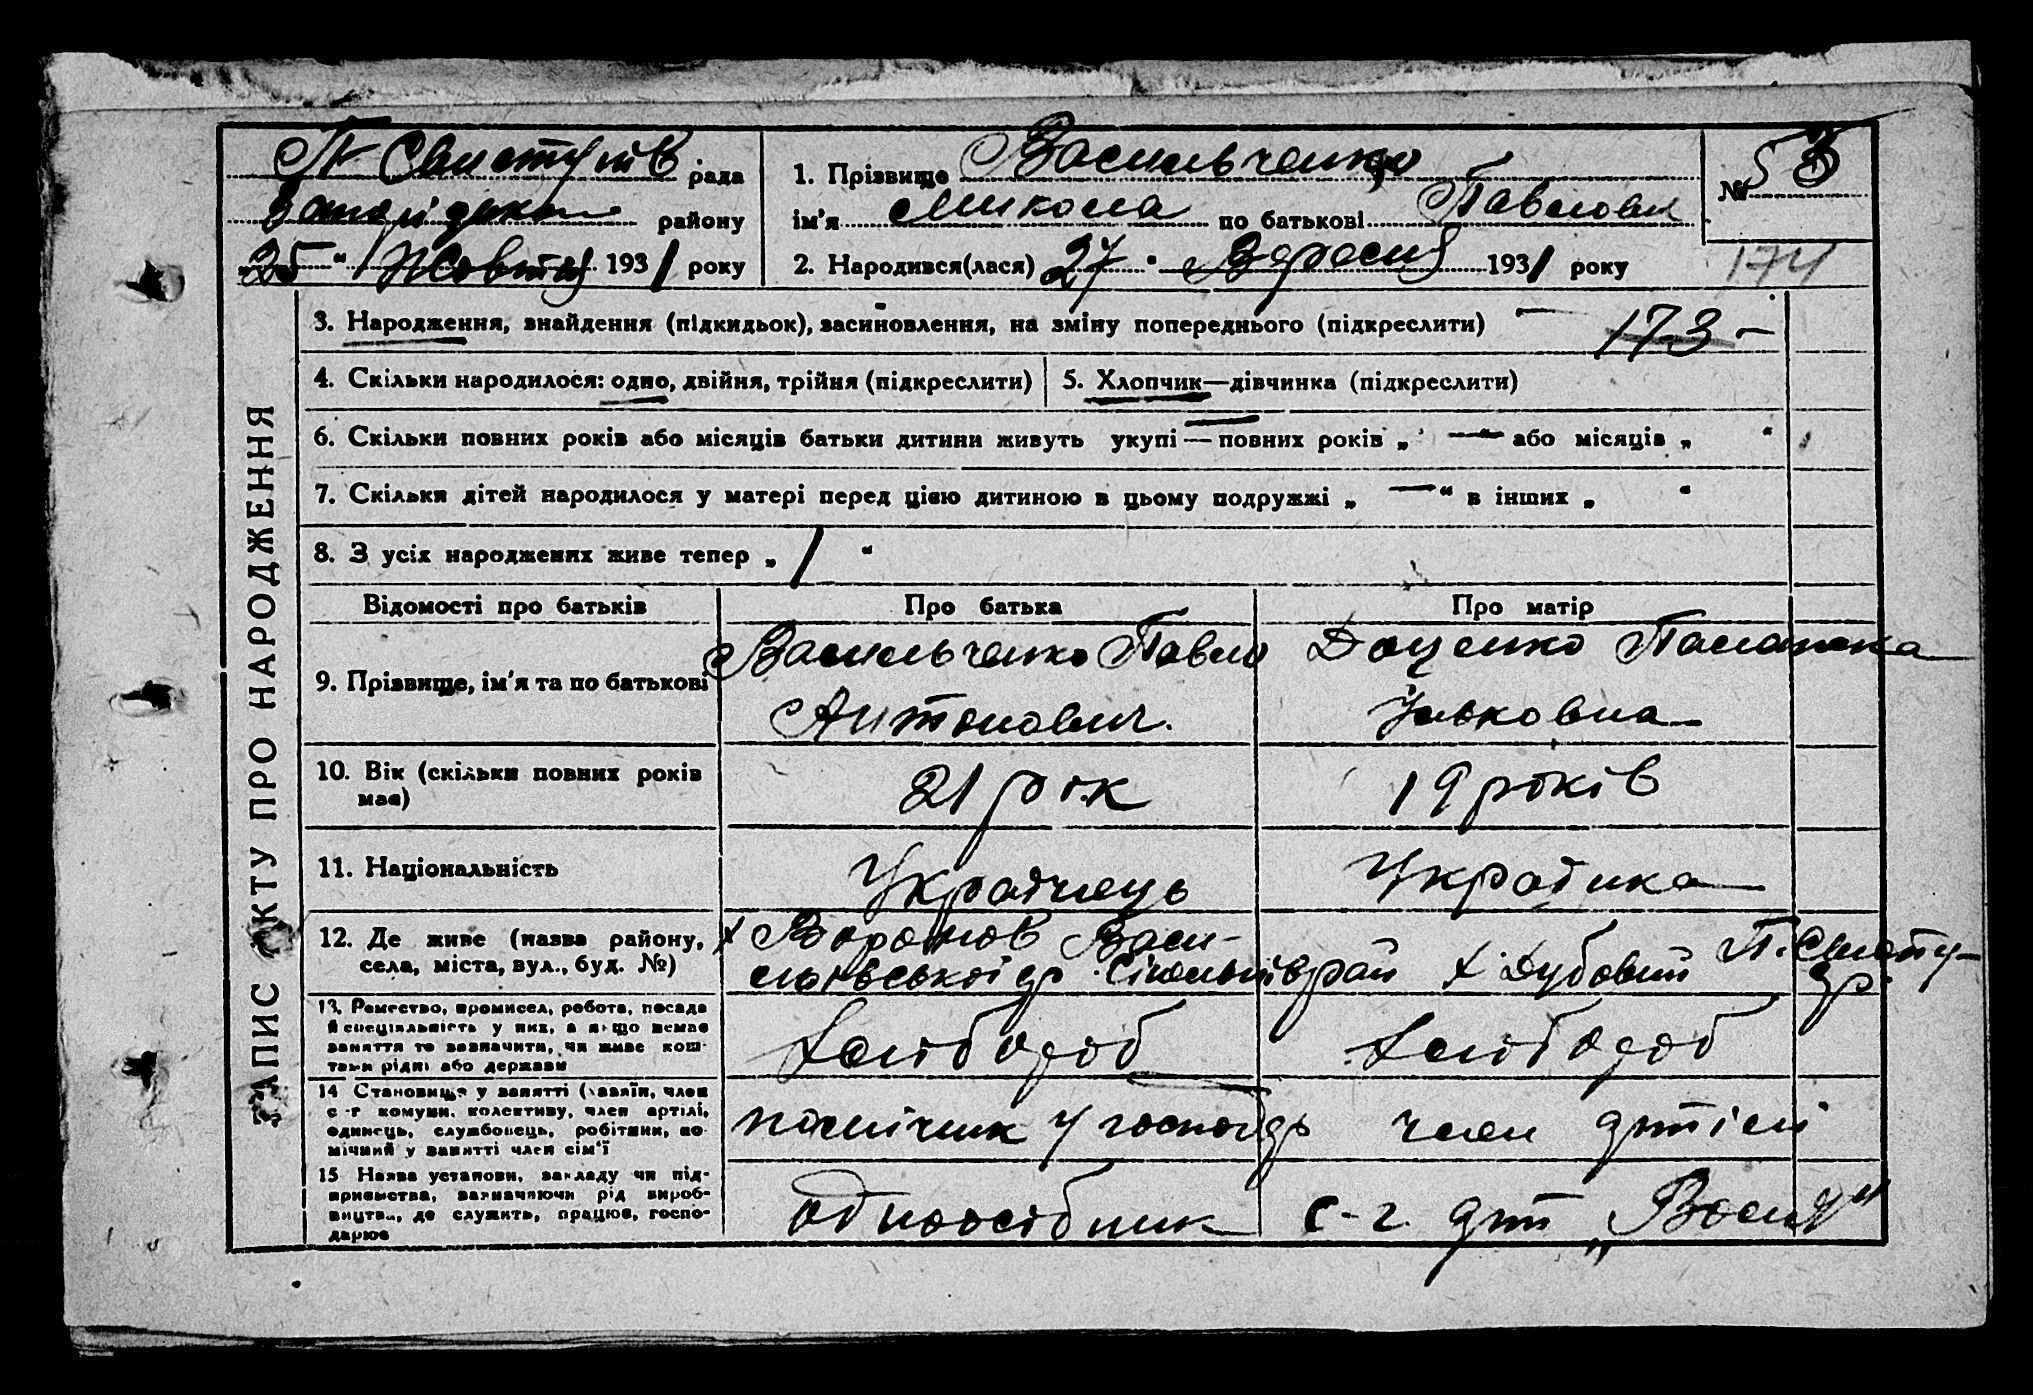 П Свистунів рада
району
„25“ Жовтня 1931 року
1. Прізвище Васильченко
ім'я Микола по батькові Павлович
2. Народився(лася) 27 " Вересня 1931 року
№ 53
174
ЗАПИС АКТУ ПРО НАРОДЖЕННЯ
3. Народження, знайдення (підкидьок), засиновлення, на зміну попереднього (підкреслити)
173 –
4. Скільки народилося: одно, двійня, трійня (підкреслити)
5. Хлопчик—дівчинка (підкреслити)
6. Скільки повних років або місяців батьки дитини живуть укупі — повних років „ — “ або місяців „ “
7. Скільки дітей народилося у матері перед цією дитиною в цьому подружжі „ — “ в інших „ “
8. З усіх народжених живе тепер „ 1 “
Відомості про батьків
Про батька
Про матір
9. Прізвище, ім'я та по батькові
Васильченко Павло
Антонович.
Доценко Палажка
Юльковна
10. Вік (скільки повних років
має)
21 рок
19 років
11. Національність
Українець
Українка
12. Де живе (назва району,
села, міста, вул., буд. №)
х Воронов Васи-
лівської ср.
х. Дубовий П. Свисту-
ср.
13. Ремество, промисел, робота, посада
й спеціяльність у них, а якщо немає
заняття то зазначити, чи живе кош-
тами рідні або держави
Хлібороб
Хлібороб
14 Становище у занятті (хазяїн, член
с-г комуни, колективу, член артілі,
одинець, службовець, робітник, по-
мічний у занятті член сім'ї
помічник у господь
член артілі
15 Назва установи, закладу чи під-
приємства, зазначаючи рід вироб-
ництва, де служить, працює, госпо-
дарює
одноосібник
с-г. арт